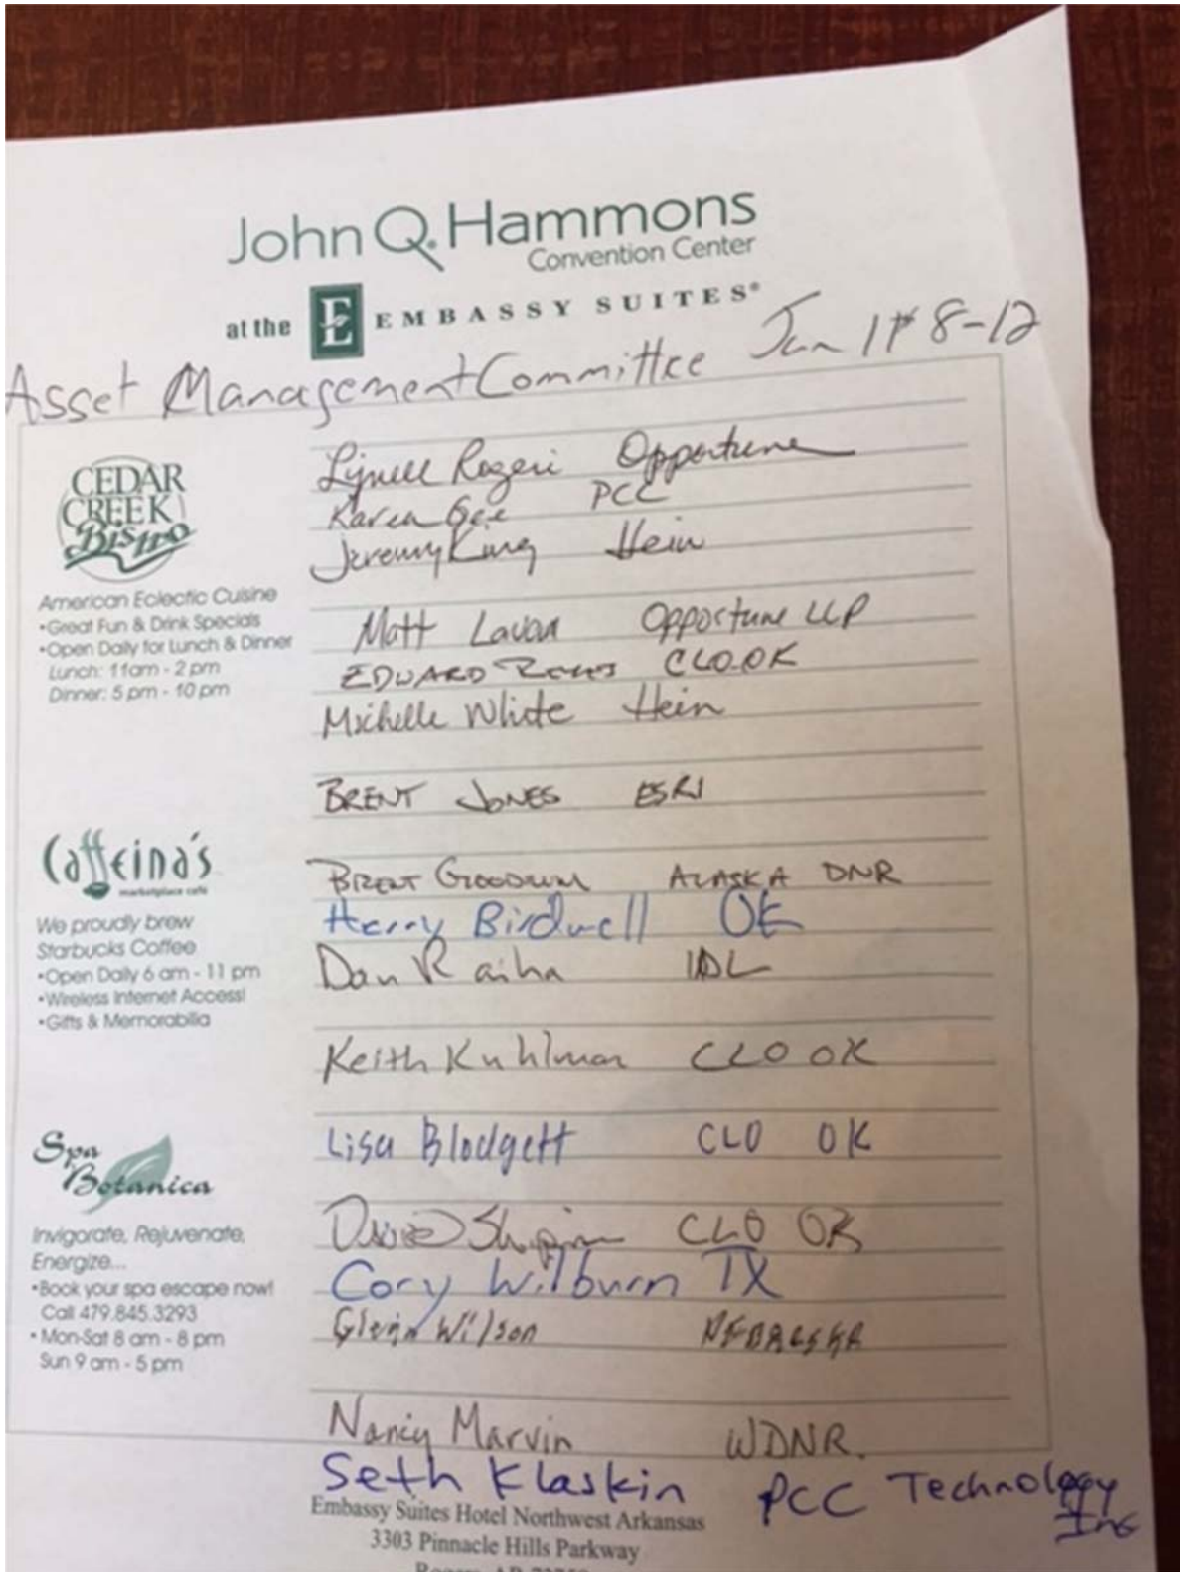 John Q. Hammons
Convention Center
at the E EMBASSY SUITES®
Asset Management Committee Jan 8-12
CEDAR
CREEK
Bistro
American Eclectic Cuisine
•Great Fun & Drink Specials
•Open Daily for Lunch & Dinner
Lunch: 11am - 2 pm
Dinner: 5 pm - 10 pm
Caffeina's
marketplace cafe
We proudly brew
Starbucks Coffee
•Open Daily 6 am - 11 pm
•Wireless Internet Access!
•Gifts & Memorabilia
Spa
Botanica
Invigorate, Rejuvenate,
Energize...
•Book your spa escape now!
Call 479.845.3293
•Mon-Sat 8 am - 8 pm
Sun 9 am - 5 pm
Opportune
Karen Gee PCC
Jeremy King Hein
Matt Lavan Opportune LLP
EDWARD CLO.OK
Michelle White Hein
BRENT JONES ESRI
BRENT GOODRUM ALASKA DNR
Harry Birdwell OK
Dan Raiha IDL
Keith Kuhlman CLO OK
Lisa Blodgett CLO OK
David CLO OK
Cory Wilburn TX
Glenn Wilson NEBRASKA
Nancy Marvin WDNR.
Seth Klaskin PCC Technology
Inc
Embassy Suites Hotel Northwest Arkansas
3303 Pinnacle Hills Parkway